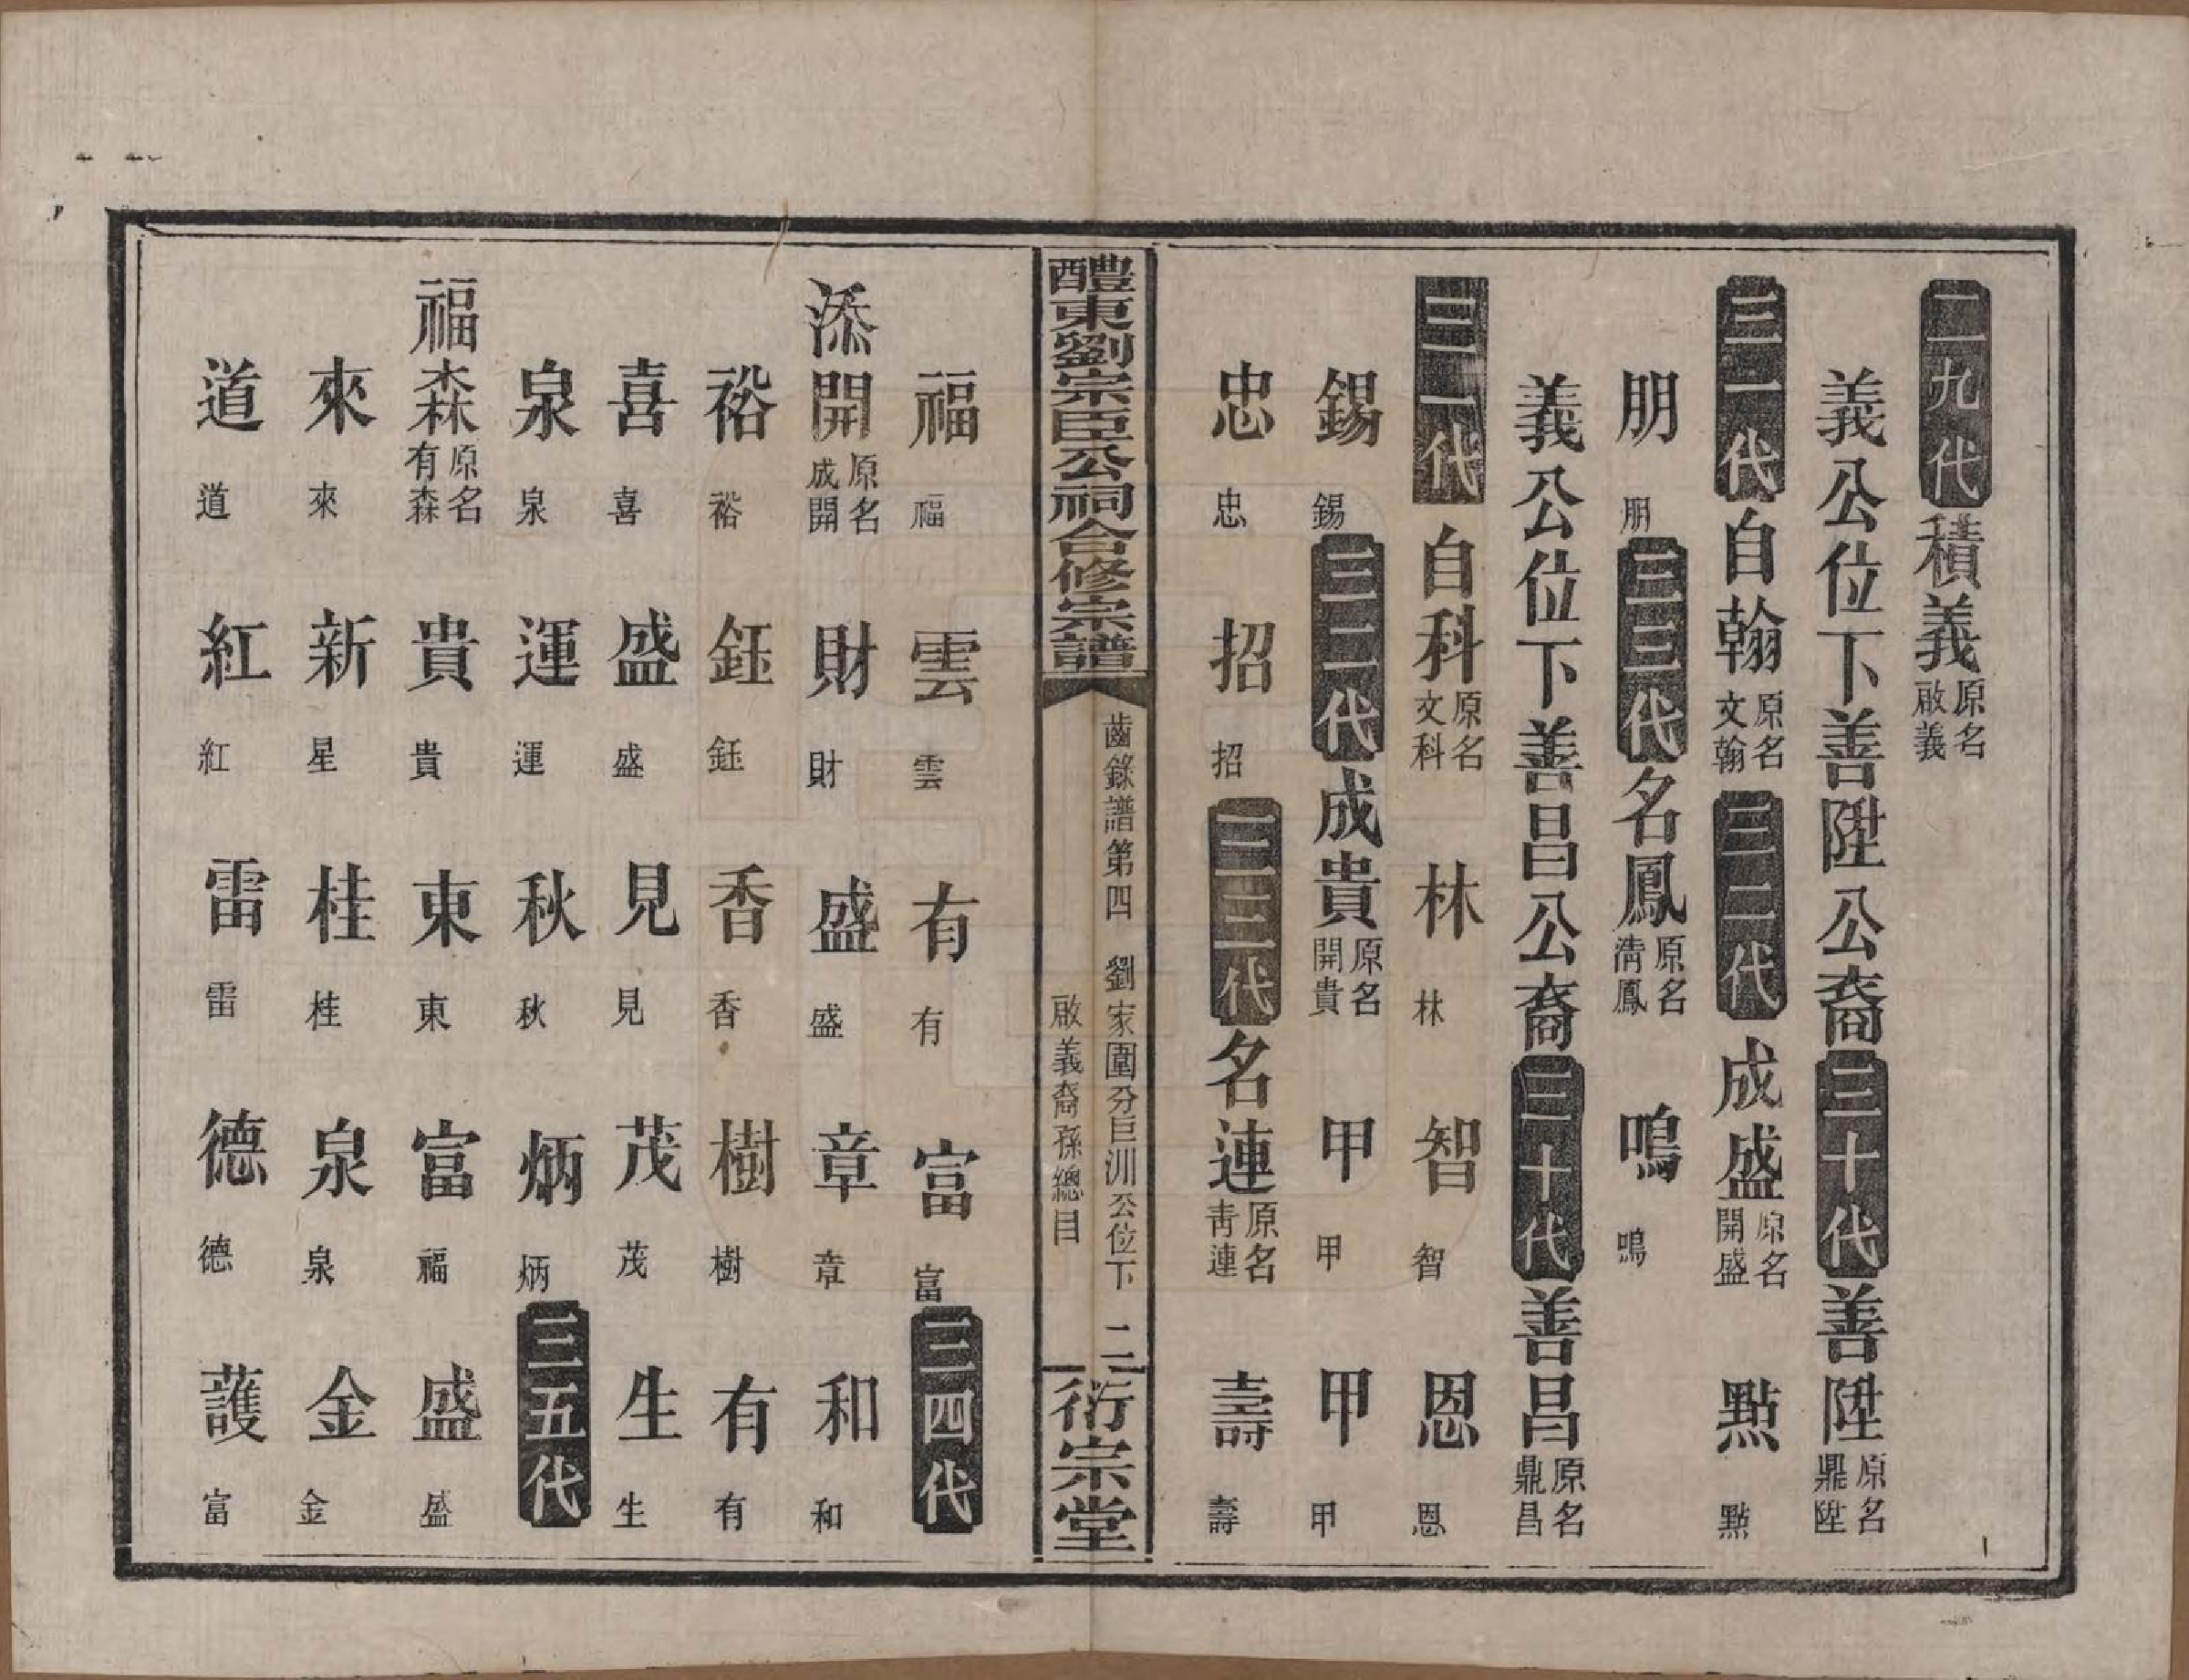 二九代積義原名啟義
義公位下善陞公裔三十代善陞原名鼎陞
三一代自翰原名文翰三二代成盛原名開盛點點
朋朋三三代名鳳原名清鳳鳴鳴
義公位下善昌公裔三十代善昌原名鼎昌
三一代自科原名文科林林智智恩恩
錫錫三二代成貴原名開貴甲甲甲甲
忠忠招招三三代名連原名青連壽壽
醴東劉宗臣公祠合修宗譜
齒錄譜第四 劉家圍分巨洲公位下 二
啟義裔孫總目
衍宗堂
福福雲雲有有富富三四代
添開原名成開財財盛盛章章和和
裕裕鈺鈺香香樹樹有有
喜喜盛盛見見茂茂生生
泉泉運運秋秋炳炳三五代
福森原名有森貴貴東東富福盛盛
來來新星桂桂泉泉金金
道道紅紅雷雷德德護富